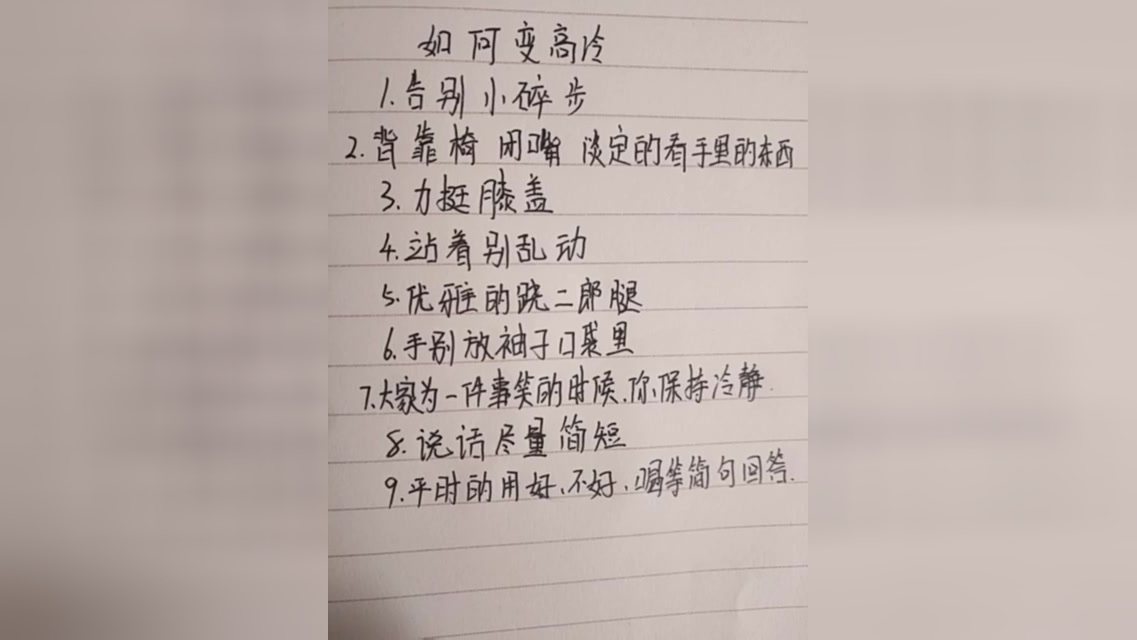 如何变高冷
1.告别小碎步
2.背靠椅 闭嘴 淡定的看手里的东西
3.力挺膝盖
4.站着别乱动
5.优雅的跷二郎腿
6.手别放袖子口袋里
7.大家为一件事笑的时候,你保持冷静.
8.说话尽量简短
9.平时的用好、不好、嗯等简句回答.